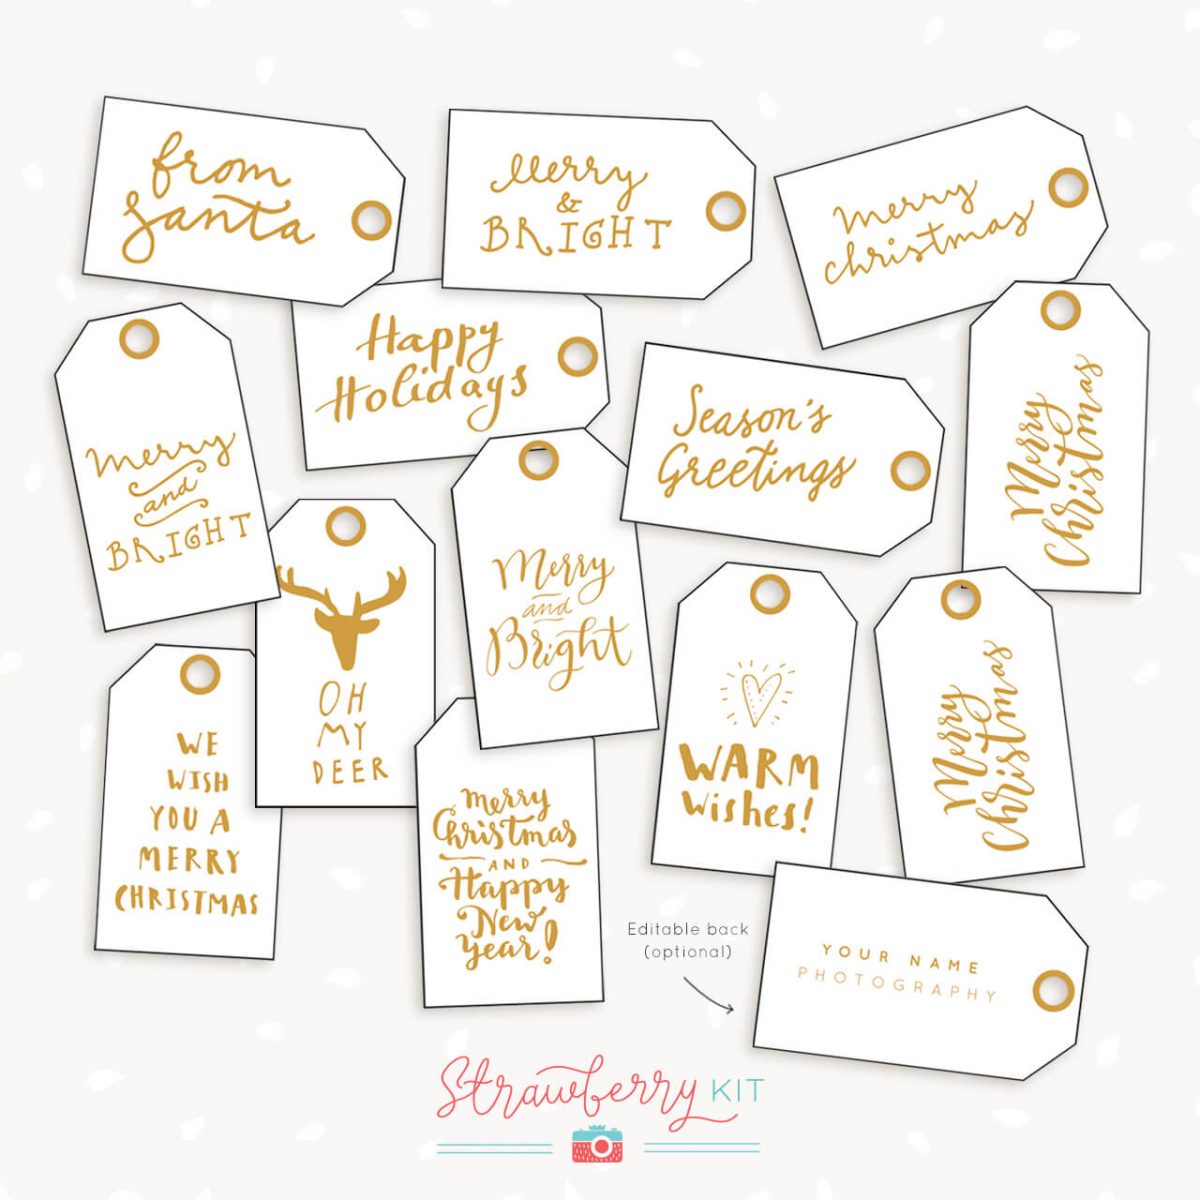 from
santa
Merry
&
BRIGHT
merry
christmas
Happy
Holidays
Season's
Greetings
Merry
Christmas
merry
and
BRIGHT
OH
MY
DEER
Merry
and
Bright
WARM
wishes!
Merry
Christmas
WE
WISH
YOU A
MERRY
CHRISTMAS
Merry
Christmas
AND
Happy
New
year!
Editable back
(optional)
YOUR NAME
PHOTOGRAPHY
Strawberry KIT